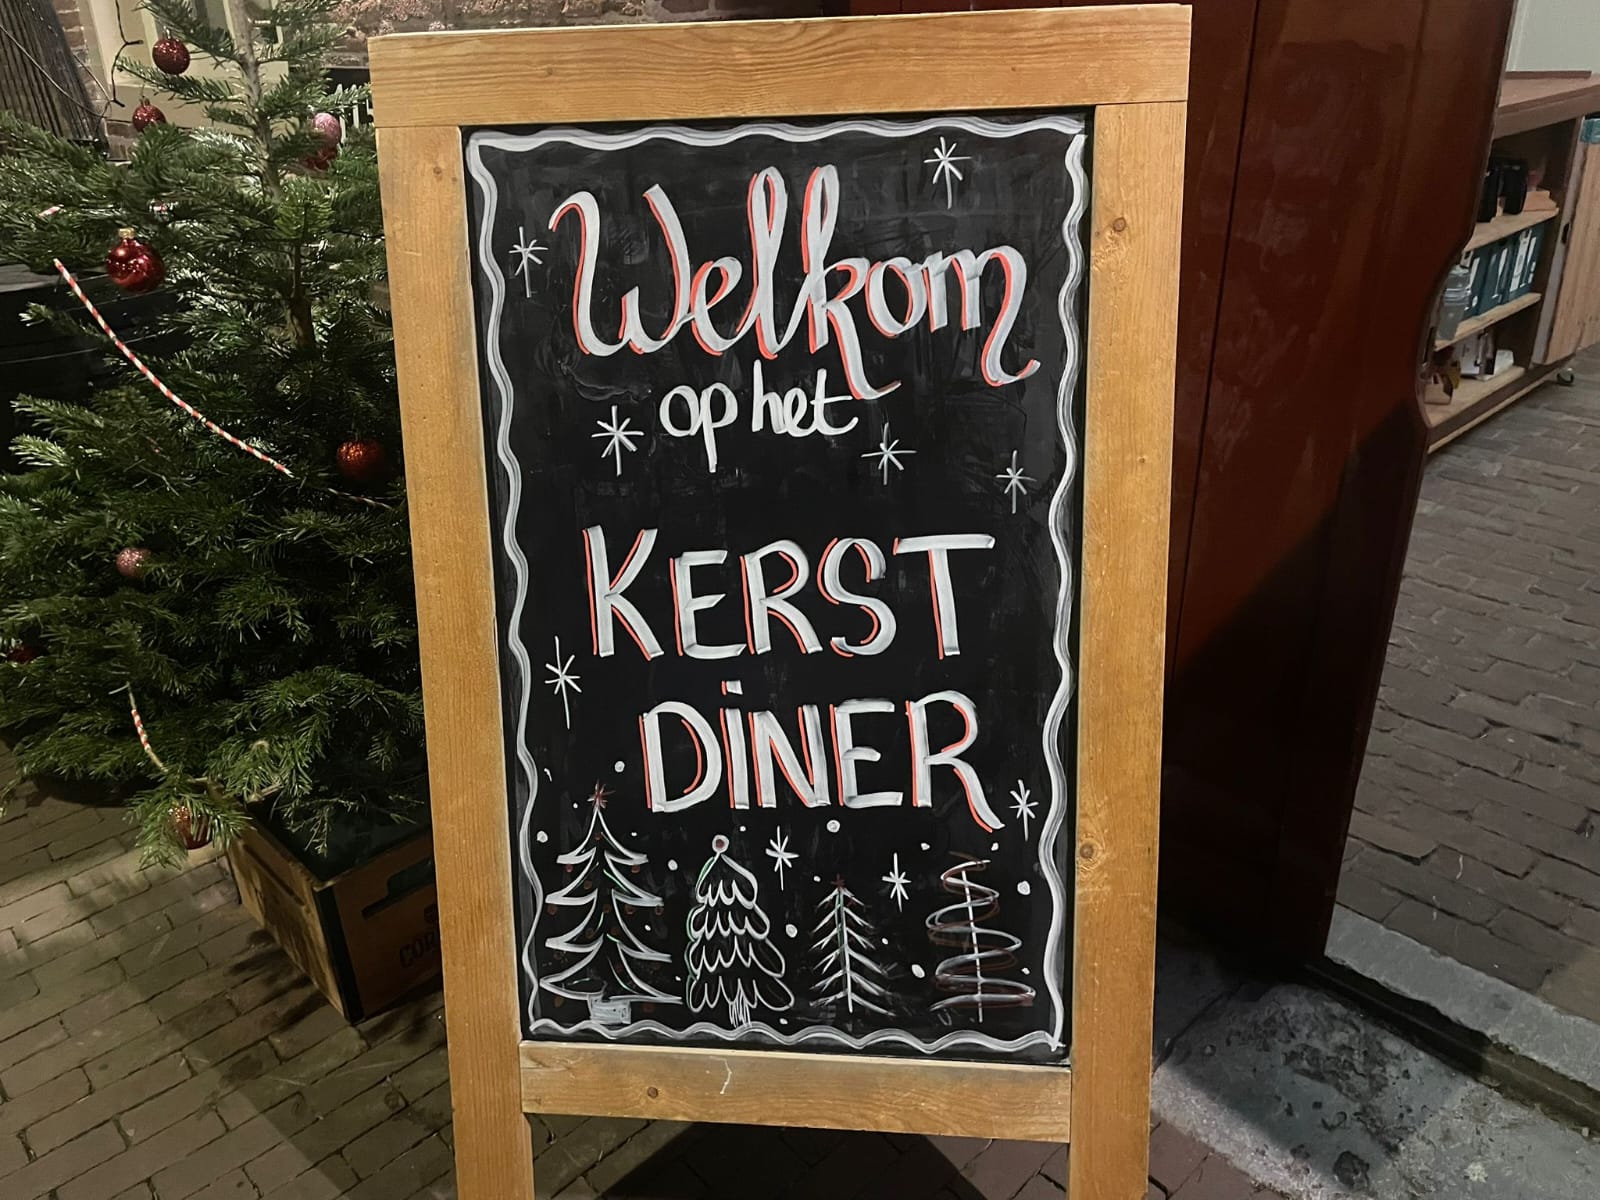 Welkom
op het
KERST
DiNER